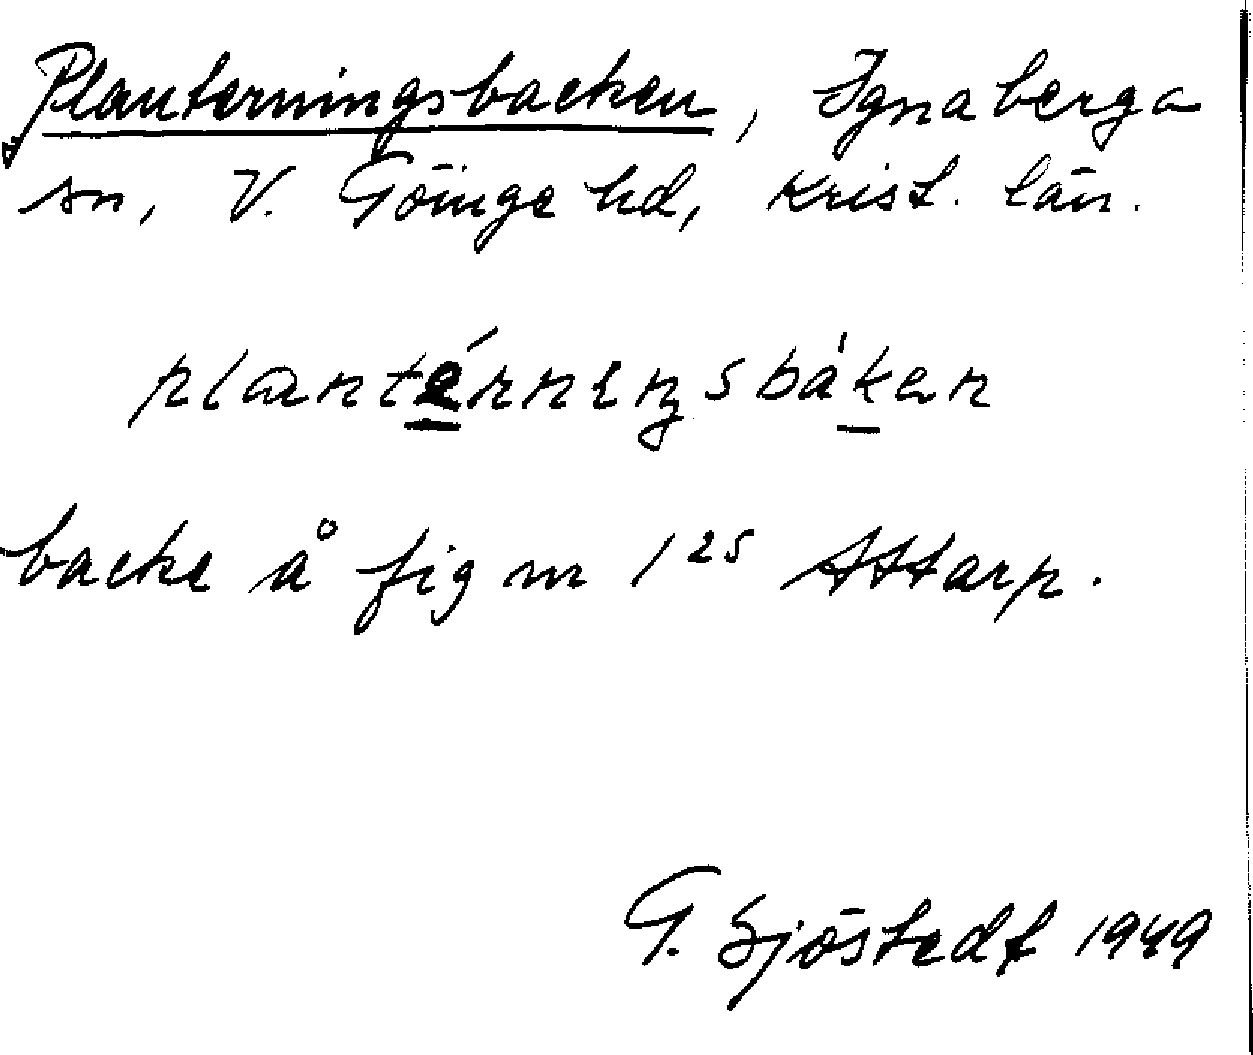 Planterningsbacken, Ignaberga
sn, V. Göinge hd, Krist. län.
plantérniŋsbáken
backe å fig m 1²⁵ Attarp.
G. Sjöstedt 1949